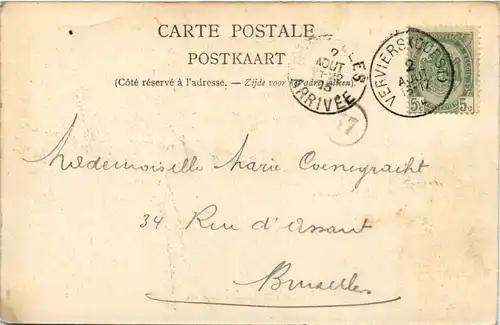 CARTE POSTALE
POSTKAART
(Côté réservé à l'adresse. — Zijde voor het adres alleen.)
2
AOUT
ARRIVÉE
VERVIERS (OUEST)
2
AOUT
5 5c
17
Mademoiselle Marie Coenegracht
34 Rue d'Assaut
Bruxelles